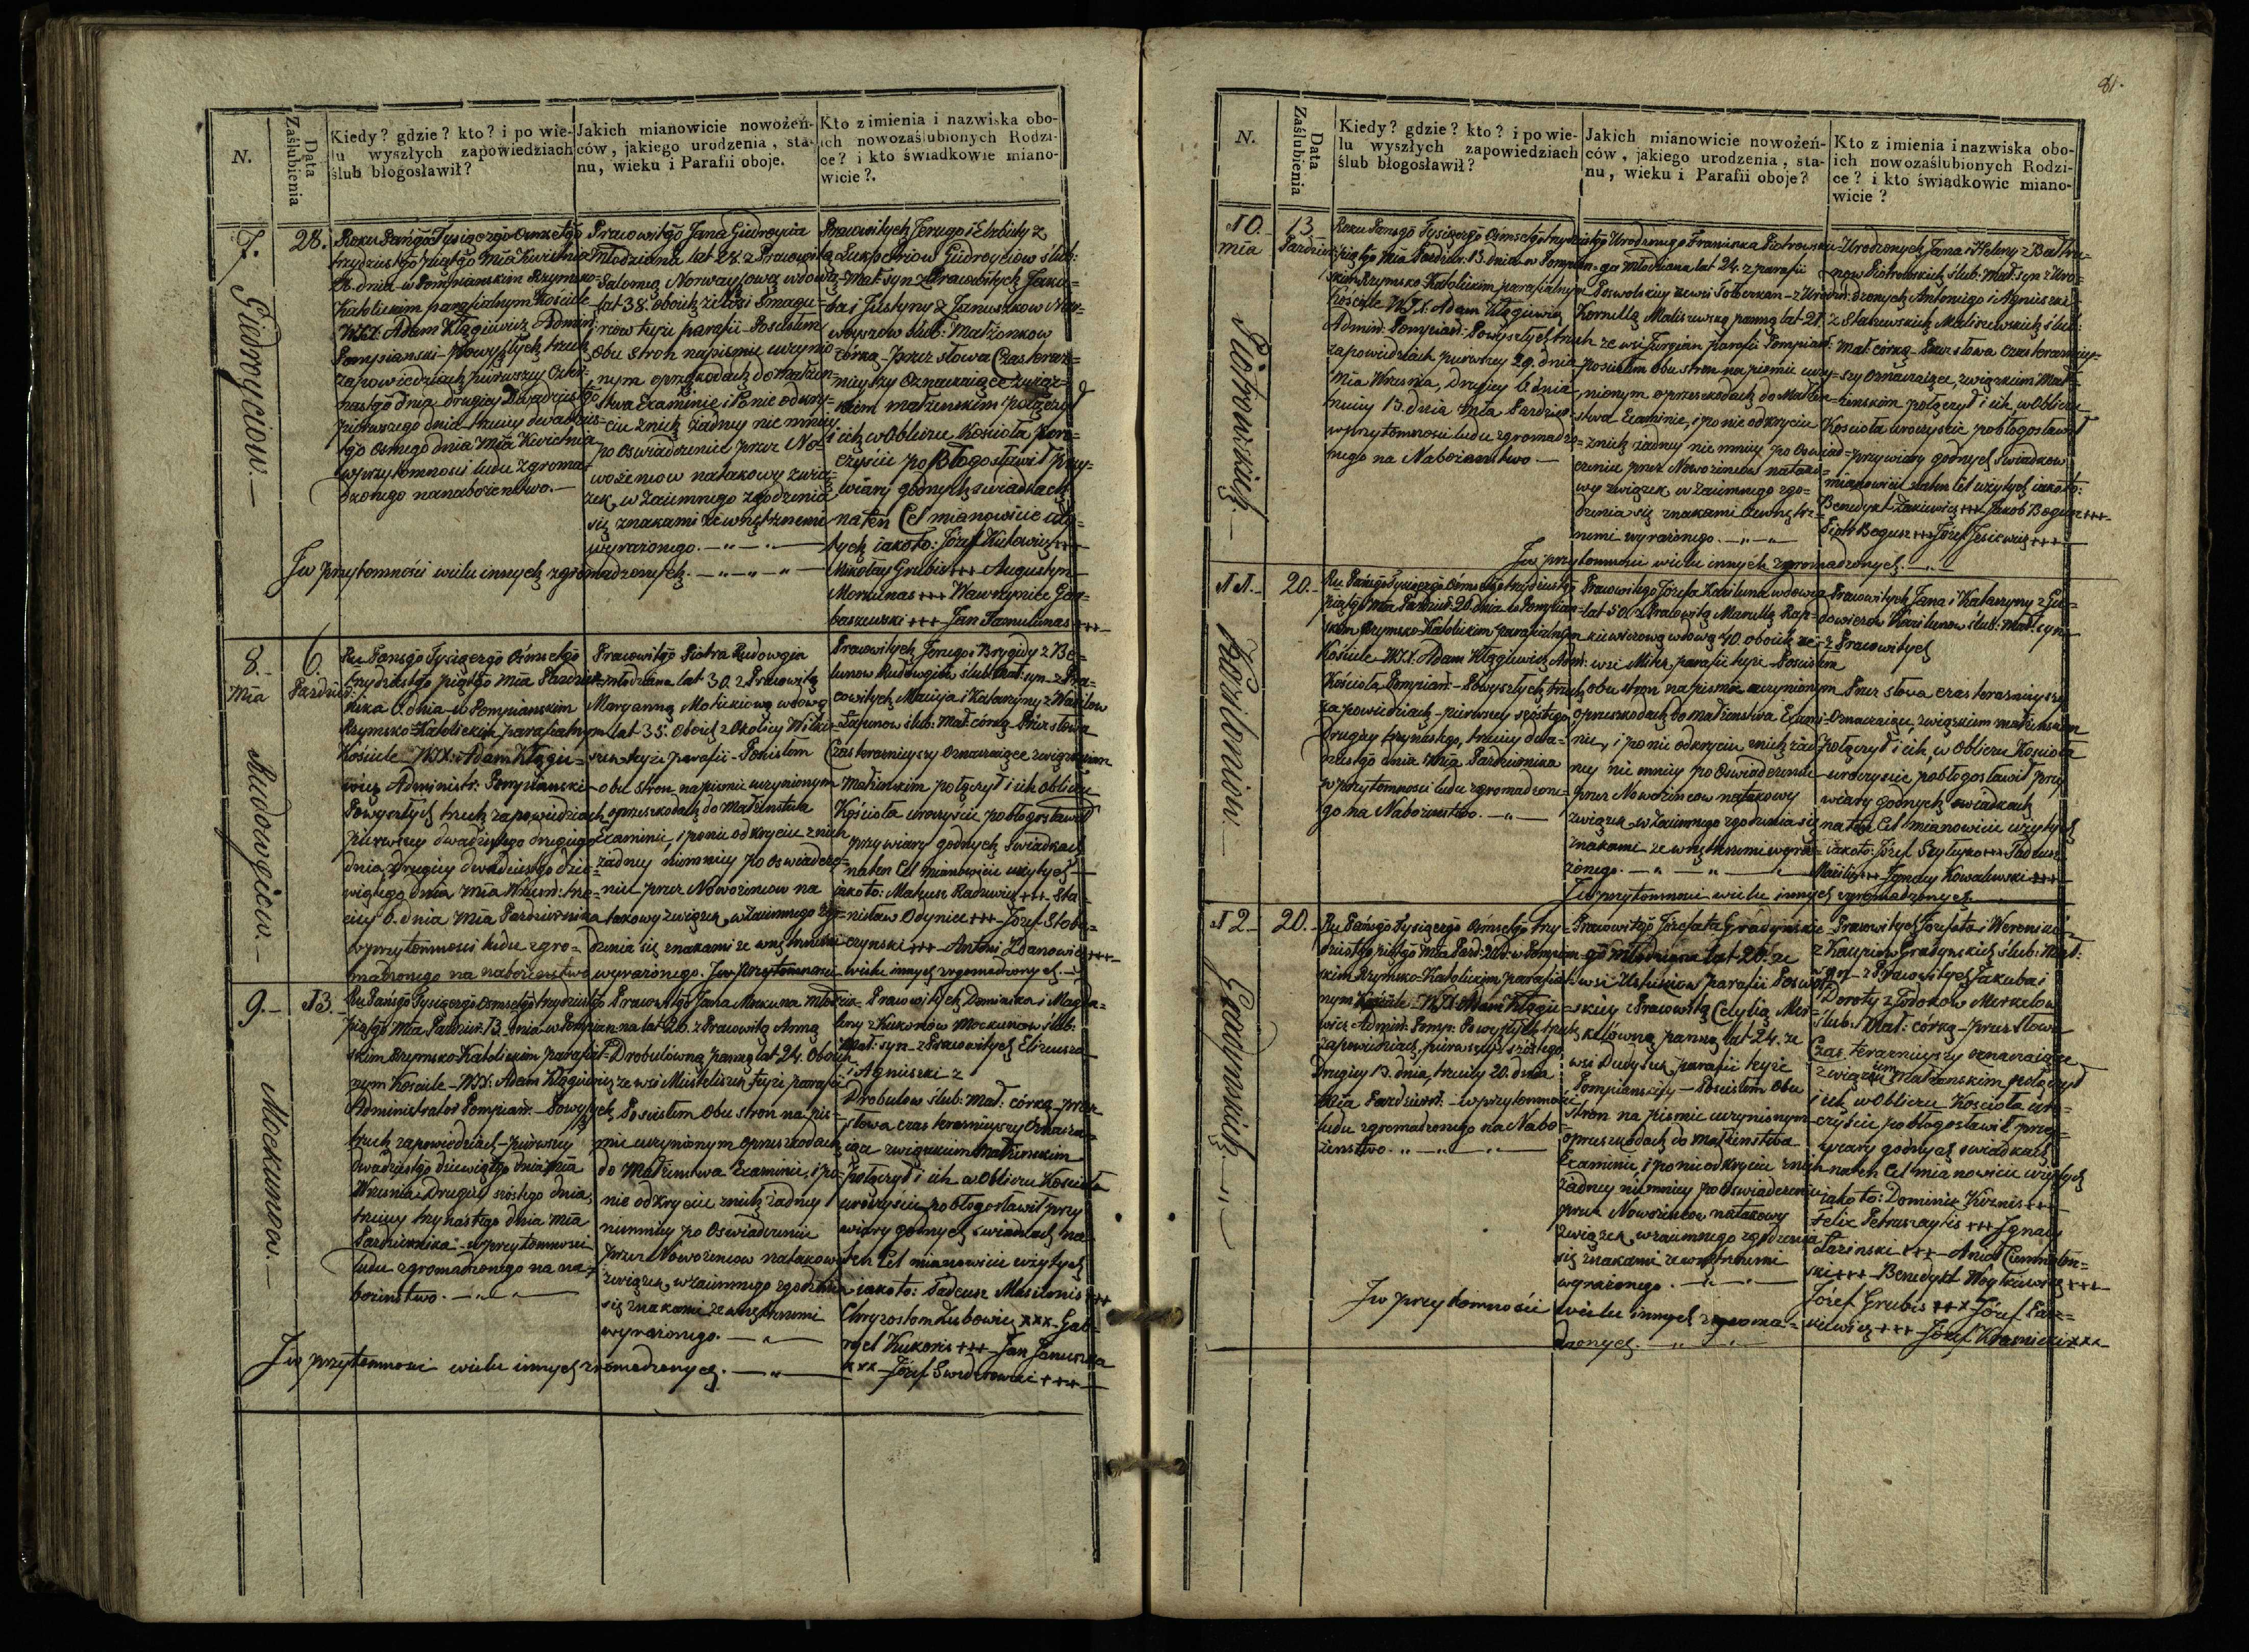 N.
Data Zaślubienia
Kiedy? gdzie? kto? i po wie-
lu wyszłych zapowiedziach
ślub błogosławił?
Jakich mianowicie nowożeń-
ców, jakiego urodzenia, sta-
nu, wieku i Parafii oboje.
Kto z imienia i nazwiska obo-
ich nowozaślubionych Rodzi-
ce? i kto świadkowie miano-
wicie?.
7.
Giedroyciow.—
28.
Roku Pańsgo Tysiączgo Osmsetgo
trzydziestgo piątgo Mia Kwietnia
28. dnia w Pompianskim Rzymsko-
Katolickim parafialnym Kościele
WJX. Adam Kłągiewicz Admin:
Pompianski – Powyszłych trzech
zapowiedziach pierwszey
nastgo dnia drugiey Dwadziestgo
pierwszego dnia trzeciey dwadzies-
tgo osmego dnia Mia Kwietnia
w przytomnosci ludu zgroma-
dzonego na nabożenstwo.—
Pracowitgo Jana Giedroycia
Młodziana lat 28. z Pracowitą
Salomeą Norwayszową wdową
lat 38. oboich ze Wsi
tejże parafii – Poscisłem
Obu Stron na pismie uczynio-
nym o przeszkodach do Małżen-
stwa Examinie i Po nie odkry-
ciu z nich żadney nie mniey
po Oswiadczeniu przez No-
wożencow na takowy zwią-
zek, wzaiemnego zgodzenia
się znakami zewnętrznemi
wyrażonego.
Pracowitych Jerzego i Elżbiety z
Giedroyciow ślub:
Mał: syn z Pracowitych Jako-
ba i Justyny z Januszkow Nor-
wayszow ślub: Małżonkow
córką – Przez słowa Czas teraz-
nieyszy Oznaczaiące związ-
kiem małżenskim połączył
i ich w Obliczu Kościoła Uro-
czyście pobłogosławił przy
wiary godnych swiadkach
na ten Cel mianowicie uży-
tych iako to: Józef +++
Mikołay Grubis +++ Augustyn
Morkunas +++ Wawrzyniec Gar-
baszewski +++ Jan Tamulunas +++
I w przytomności wielu innych zgromadzonych.
8.
Mia
Rudowgiew.—
6.
Pazdzier:
Ru Pansgo Tysiączgo Osmsetgo
trzydziestgo piątgo Mia Pazdzier-
nika 6. dnia w Pompianskim
Rzymsko-Katolickim parafialnym
Kościele WJX. Adam Kłągie-
wicz Administr: Pompianski
Powyszłych trzech zapowiedziach
pierwszey dwadziestego drugiego
dnia, Drugiey dwadziestgo dzie-
wiątego dnia Mia Wrzesn: trze-
ciey 6. dnia Mia Pazdziernika
w przytomnosci ludu zgro-
madzonego na nabożenstwo
Pracowitgo Piotra Rudowgia
młodziana lat 30. z Pracowitą
Maryanną wdową
lat 35. Oboich z Okolicy
tejże parafii – Poscisłem
obu stron na pismie uczynionym
o przeszkodach do Małżenstwa
Examinie, i po nie odkryciu z nich
żadney niemniey po oswiadcze-
niu przez Nowożencow na
takowy związek, wzaiemnego zgo-
dzenia się znakami ze wnętrznemi
wyrażonego. I w przytomnosci wielu innych zgromadzonych.
Pracowitych Jerzego i Brygidy z Be-
Rudowgiew ślub: Mał: syn – z Pra-
cowitych Macieja i Katarzyny z
ślub: Mał: córką – Przez słowa
Czas teraznieyszy Oznaczaiące związkiem
Małżenskim połączył i ich Obliczu
Kościoła uroczyście pobłogosławił
przy wiary godnych Swiadkach
na ten Cel mianowicie użytych
iako to: Mateusz Radzewicz +++ Sta-
nisław Odyniec +++ Józef Słobo-
czynski +++ Antoni Zdanowicz +++
9.—
Mockunow.—
13.
Ru Pansgo Tysiączgo Osmsetgo trzydziestgo
piątgo Mia Pazdzier: 13. dnia w Pompian-
skim Rzymsko-Katolickim parafial-
nym Kościele – WJX. Adam Kłągiewicz
Administrator Pompian: – Powyszłych
trzech zapowiedziach – pierwszey
dwadziestgo dziewiątgo dnia Mia
Wrzesnia Drugiey szóstego dnia,
trzeciey trzynastego dnia Mia
Pazdziernika – w przytomnosci
ludu zgromadzonego na na-
bożenstwo.
Pracowitgo Jana Mockuna młodzia-
na lat 26. z Pracowitą Anną
Drobulówną panną lat 24. Oboich
ze wsi tejże parafii
Poscisłem Obu stron na pis-
mie uczynionym o przeszkodach
do Małżenstwa Examinie, i po-
nie odkryciu z nich żadney
niemniey po Oswiadczeniu
przez Nowożencow na takowy
związek, wzaiemnego zgodzenia
się znakami zewnętrznemi
wyrażonego.
Pracowitych Dominika i Magda-
leny z Kukonow Mockunow ślub:
Mał: syn – z Pracowitych Elizeusza
i Agnieszki z
Drobulow ślub: Mał: córką – przez
słowa czas teraznieyszy Oznacza-
iące związkiem Małżenskim
Połączył i ich w Obliczu Kościoła
uroczyście pobłogosławił przy
wiary godnych swiadkach na
ten Cel mianowicie użytych
iako to: Tadeusz Masilonis +++
Chryzostom Lubowicz xxx – Gab-
ryel Kukoris +++ Jan Januszka
xxx – Józef +++
I w przytomnosci wielu innych zgromadzonych.
81.
N.
Data Zaślubienia
Kiedy? gdzie? kto? i po wie-
lu wyszłych zapowiedziach
ślub błogosławił?
Jakich mianowicie nowożeń-
ców, jakiego urodzenia, sta-
nu, wieku i Parafii oboje?
Kto z imienia i nazwiska obo-
ich nowozaślubionych Rodzi-
ce? i kto świadkowie miano-
wicie?
10.
mia
Piotrowskich.—
13.
Pazdzier:
Roku Pansgo Tysiączgo Osmsetgo trzydziestgo
piątgo Mia Pazdzier: 13. dnia w Pompian-
skim Rzymsko-Katolickim parafialnym
Kościele WJX. Adam Kłągiewicz
Admin: Pompian: Powyszłych trzech
zapowiedziach pierwszey 29. dnia
Mia Wrzesnia, Drugiey 6 dnia
trzeciey 13. dnia Mia Pazdzier:
w przytomnosci ludu zgromadzo-
nego na Nabożenstwo —
Urodzonego Franciszka Piotrowskie-
go Młodziana lat 24. z parafii
Poswolskiey ze wsi – z Urodz:
Kornellą Maliszewską panną lat 21.
ze wsi parafii Pompian:
poscisłem Obu stron na pismie uczy-
nionym o przeszkodach do Małżen-
stwa Examinie, i po nie odkryciu
z nich żadney nie mniey po Oswiad-
czeniu przez Nowożencow na tako-
wy związek, wzaiemnego zgo-
dzenia się znakami zewnętrz-
nemi wyrażonego.
Urodzonych Jana i Heleny z
Piotrowskich ślub: Mał: syn z Uro-
dzonych Antoniego i Agnieszki
z Staszewskich Maliszewskich ślub:
Mał: córką – Przez słowa Czas terazniey-
szy Oznaczaiące, związkiem Mał-
żenskim połączył i ich w Obliczu
Kościoła uroczyscie pobłogosławił
przy wiary godnych swiadkow
mianowicie na ten Cel użytych iako to:
Benedykt Żakiewicz +++ Jakób Bogusz +++
Piotr Bogusz +++ Józef +++
I w przytomnosci wielu innych zgromadzonych
11.
20.
Ru Pansgo Tysiączgo Osmsetgo trzydziestgo
piątgo Mia Pazdzier: 20. dnia w Pompian-
skim Rzymsko-Katolickim parafialnym
Kościele WJX. Adam Kłągiewicz Adm:
Kościoła Pompian: – Powyszłych trzech
zapowiedziach – pierwszey szóstego,
Drugiey trzynastego, trzeciey dwa-
dziestgo dnia Mia Pazdziernika
w przytomnosci ludu zgromadzone-
go na Nabożenstwo.
Pracowitgo Józefa wdowca
lat 50. z Pracowitą Maryellą Rap-
wdową 40. oboich ze
wsi parafii tejże – Poscisłem
obu stron na pismie uczynionym
o przeszkodach do małżenstwa Exami-
nie, i po nie odkryciu z nich żad-
ney nie mniey po Oswiadczeniu
przez Nowożencow na takowy
związek, wzaiemnego zgodzenia się
znakami ze wnętrznemi wyra-
żonego.
Pracowitych Jana i Katarzyny z
ślub: Mał: syn
z Pracowitych
Przez słowa czas teraznieyszy
Oznaczaiące, związkiem małżenskim
połączył i ich, w Obliczu Kościoła
uroczyscie pobłogosławił przy
wiary godnych swiadkach
na ten Cel mianowicie użytych
iako to: Józef +++ Tadeusz
+++ Ignacy Kowalewski +++
I w przytomnosci wielu innych zgromadzonych
12
Gradynskich.—
20.
Ru Pansgo Tysiączgo Osmsetgo trzy-
dziestgo piątgo Mia Pazd: 20 d: w Pompian-
skim Rzymsko-Katolickim parafial-
nym Kościele – WJX. Adam Kłągie-
wicz Admin: Pomp: Powyszłych trzech
zapowiedziach, pierwszey szóstego,
Drugiey 13. dnia, trzeciey 20. dnia
Mia Pazdziern: – w przytomnosci
ludu zgromadzonego na Nabo-
żenstwo.
Pracowitgo Józefata Gradynskie-
go Młodziana lat 26. ze
wsi parafii Poswol-
skiey z Pracowitą Cecylią Mer-
kelówną panną lat 24. ze
wsi parafii tejże
Pompianskiey – Poscisłem Obu
stron na pismie uczynionym
o przeszkodach do Małżenstwa
Examinie i po nie odkryciu z nich
żadney niemniey po Oswiadczeniu
przez Nowożencow na takowy
związek, wzaiemnego zgodzenia
się znakami zewnętrznemi
wyrażonego.
Pracowitych Józefata i Weroniki
z Gradynskich ślub: Mał:
syn – z Pracowitych Jakuba i
Doroty z Merkelow
ślub: Mał: córką – przez słowa
Czas teraznieyszy oznaczaiące
związkiem Małżenskim połączył
i ich w Obliczu Kościoła uro-
czyście pobłogosławił przy
wiary godnych swiadkach
na ten Cel mianowicie użytych
iako to: Dominik +++
Felix Petraszaytis +++ Ignacy
Łazinski +++
+++ Benedykt Woytkiewicz +++
Józef Grubis +++ Józef
+++ Józef xxx
I w przytomności wielu innych zgroma-
dzonych.